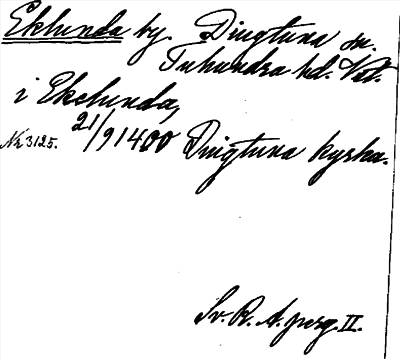 Eklunda by. Dingtuna sn.
Tuhundra hd. Vstm.
i Ekelunda,
21/9 1400 Dingtuna kyrka.
Nr 3125.
Sv. R. A. perg. II.